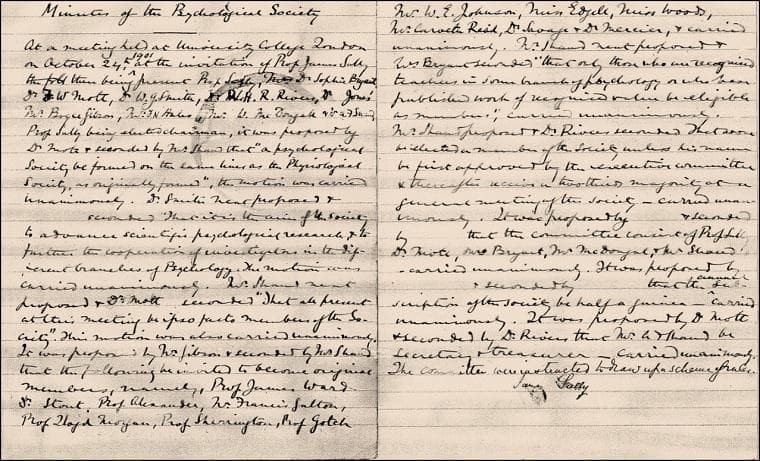 Minutes of the Psychological Society
At a meeting held at University College London
on October 24th, 1901 at the invitation of Prof James Sully
the foll: then being present Prof Sully, Mrs Dr Sophie Bryant,
Dr F W Mott, Dr W. G. Smith, Dr W. H. R. Rivers, Dr Jones
Mr Boyce Gibson, Mr F N Hales, Mr W. McDougall & Mr A F Shand,
Prof Sully being elected chairman, it was proposed by
Dr Mott & seconded by Mr Shand that "a psychological
Society be formed on the same lines as the Physiological
Society, as originally formed", the motion was carried
unanimously. Dr Smith next proposed &
seconded "That it is the aim of the society
to advance scientific psychological research, & to
further the cooperation of investigators in the dif-
ferent branches of Psychology. The motion was
carried unanimously. Mr Shand next
proposed & Dr Mott seconded "That all present
at this meeting be ipso facto members of the So-
ciety". This motion was also carried unanimously.
It was proposed by Mr Gibson & seconded by Mr Shand
that the following be invited to become original
members, namely, Prof James Ward
Dr Stout, Prof Alexander, Mr Francis Galton,
Prof Lloyd Morgan, Prof Sherrington, Prof Gotch
Mr W. E. Johnson, Miss Edgell, Miss Woods,
Mr Carveth Read, Dr Savage & Dr Mercier, & carried
unanimously. Mr Shand next proposed &
Mrs Bryant seconded "that only those who are recognised
teachers in some branch of psychology or who have
published work of recognised value be eligible
as members", carried unanimously.
Mr Shand proposed & Dr Rivers seconded That no one
be elected a member of the Society unless his name
be first approved by the executive committee
& thereafter receive a two thirds majority at a
general meeting of the Society – carried unan-
imously. It was proposed by & seconded
by that the committee consist of Prof Sully
Dr Mott, Mrs Bryant, Mr McDougal, & Mr Shand
– carried unanimously. It was proposed by
& seconded by that the annual sub-
scription of the society be half a guinea – carried
unanimously. It was proposed by Dr Mott
& seconded by Dr Rivers that Mr Shand be
Secretary & treasurer – carried unanimously.
The committee were instructed to draw up a scheme of rules.
James Sully